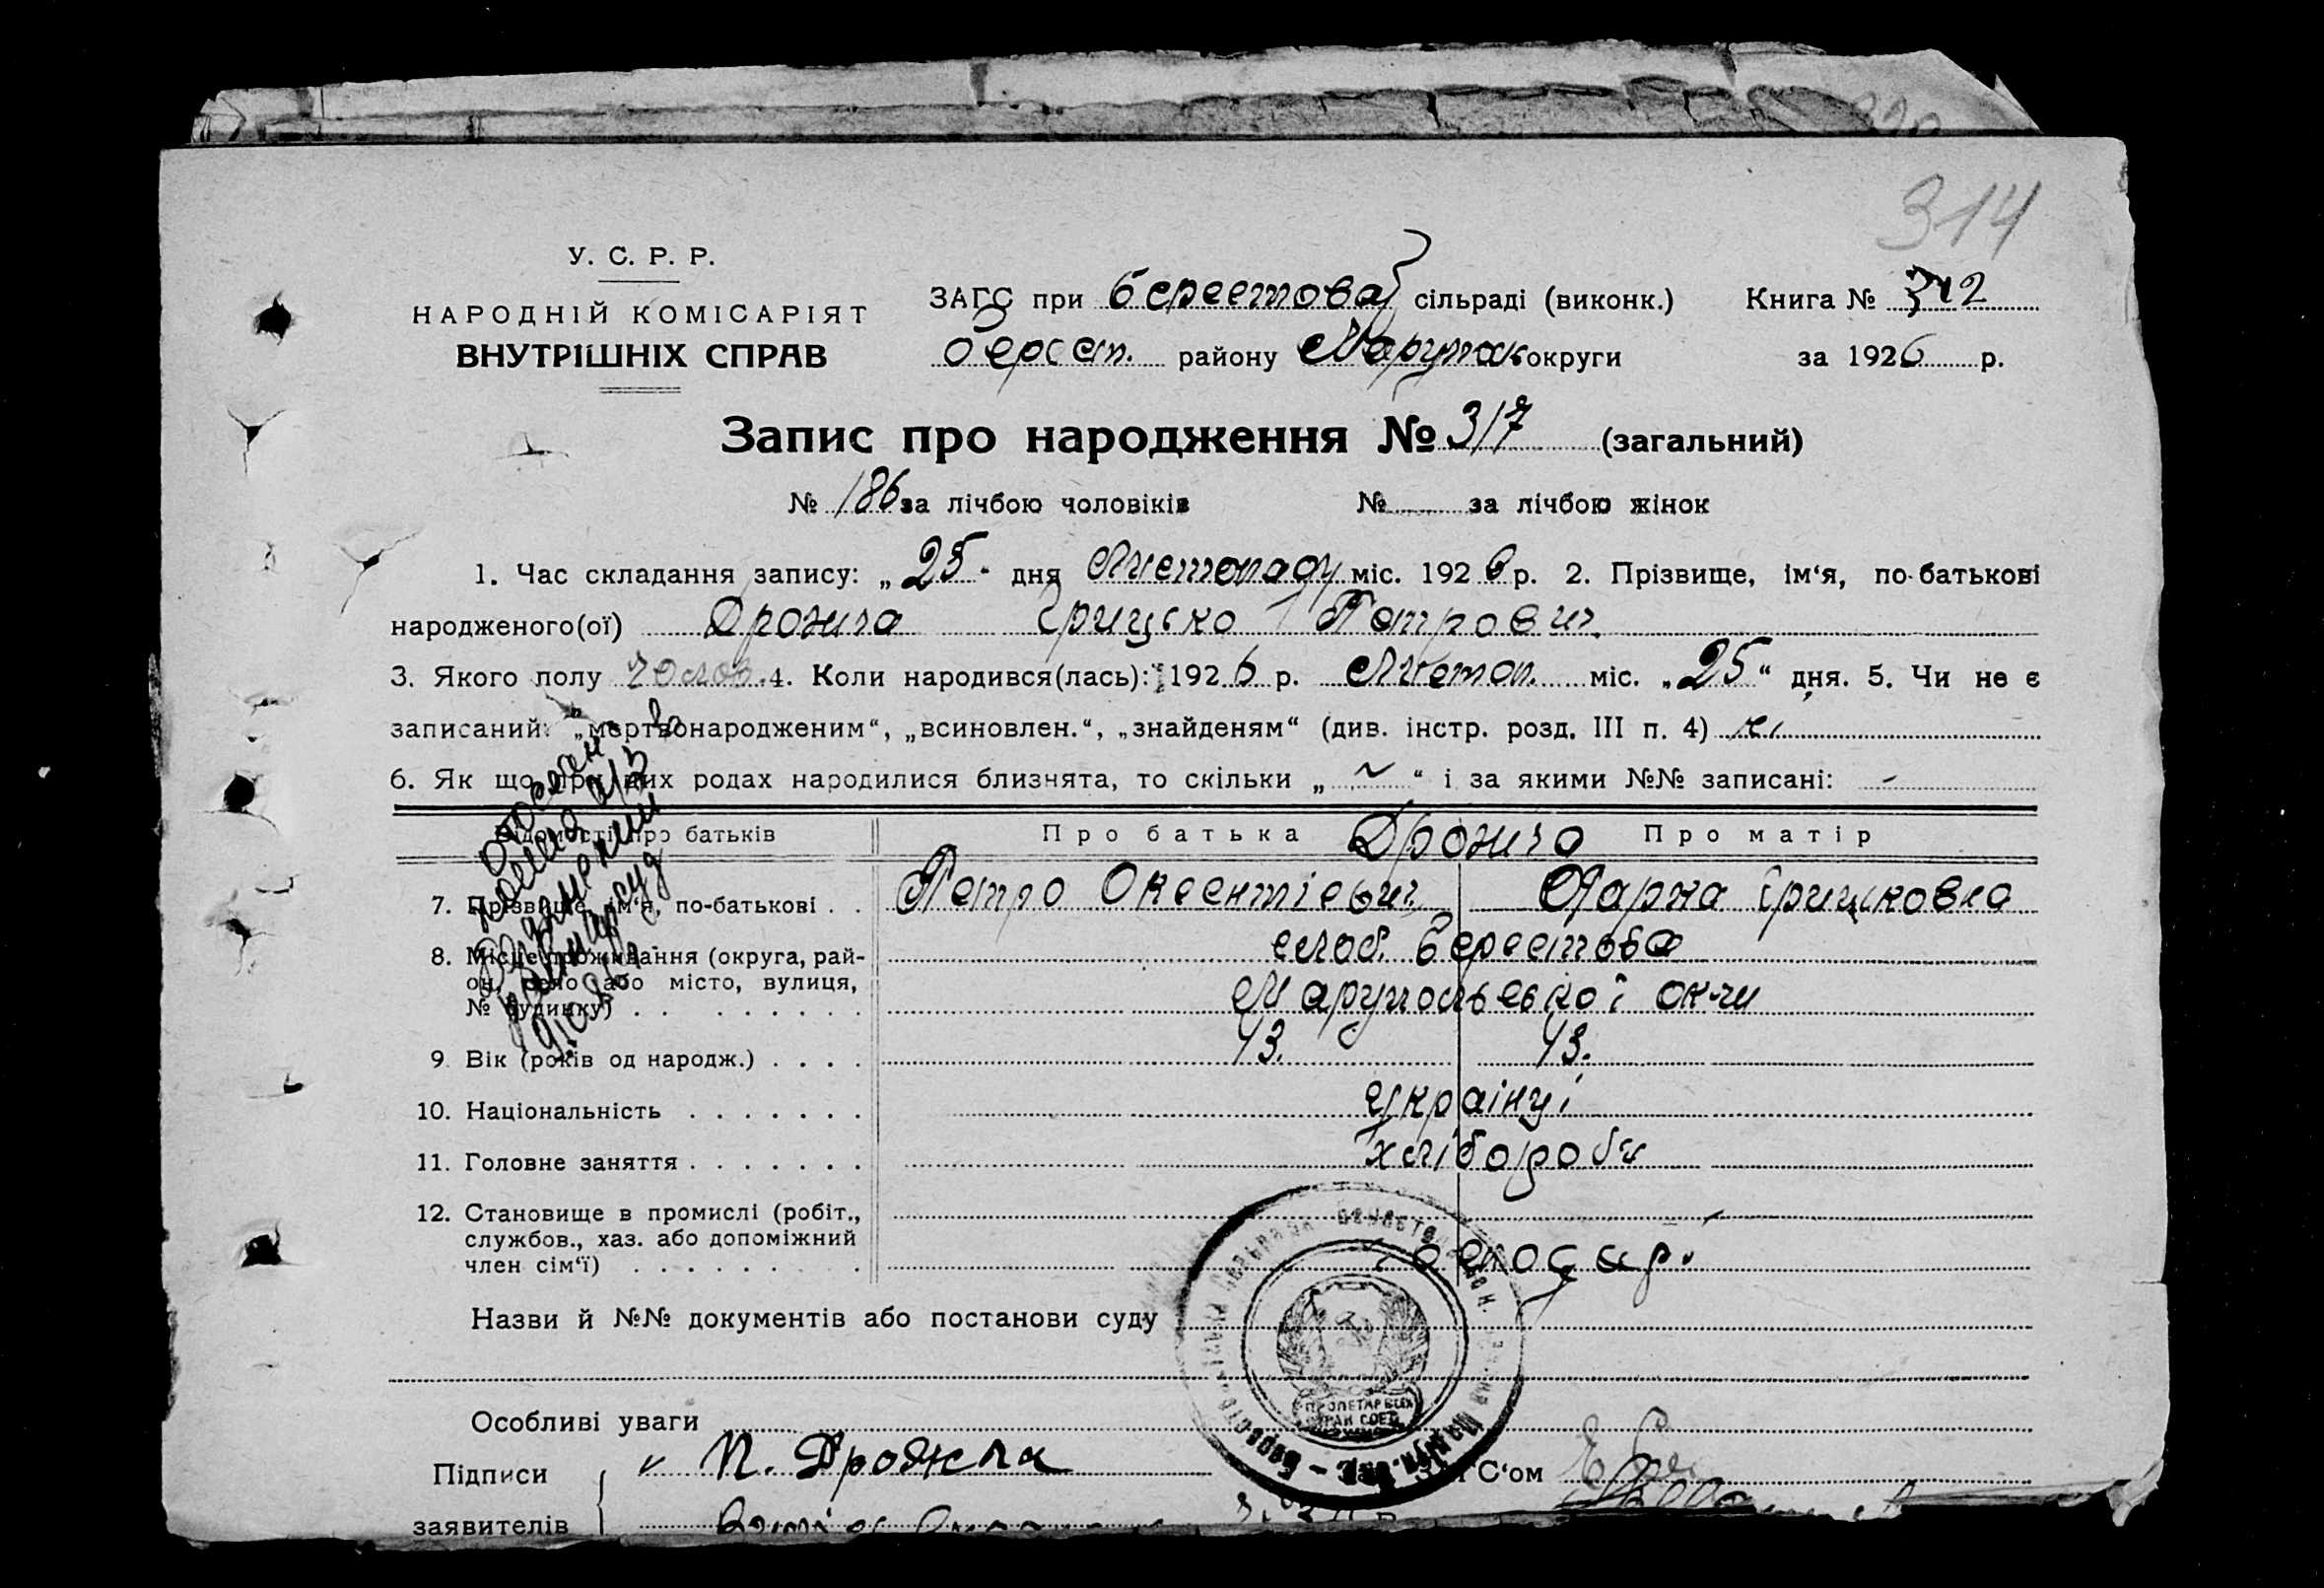 314
У. С. Р. Р.
НАРОДНІЙ КОМІСАРІЯТ
ВНУТРІШНІХ СПРАВ
ЗАГС при Берестова сільраді (виконк.) Книга №
Берест. району Маруполь округи за 1926 р.
Запис про народження № 317 (загальний)
№ 186 за лічбою чоловіків № за лічбою жінок
1. Час складання запису: „25" дня Листопаду міс. 1926 р. 2. Прізвище, ім'я, по-батькові
народженого(ої) Дрожча Грицько Петрович
3. Якого полу Чолов. 4. Коли народився(лась): 1926 р. Листоп. міс. „25" дня. 5. Чи не є
записаний: „мертвонародженим", „всиновлен.", „знайденям" (див. інстр. розд. III п. 4) ні
6. Як що при цих родах народилися близнята, то скільки „ ~ " і за якими №№ записані: -
Відомості про батьків Про батька Дрожча Про матір
7. Прізвище, ім'я, по-батькові . . Петро Оксентієвич Мария Грицьковна
8. Місце проживання (округа, рай- слоб. Берестова
он, село або місто, вулиця, Марупольської ок-ги
№ будинку) . . . . . . . .
9. Вік (років од народж.) . . . . 43. 43.
10. Національність . . . . . . . Українці
11. Головне заняття . . . . . . . хлібороби
12. Становище в промислі (робіт.,
службов., хаз. або допоміжний
член сім'ї) . . . . . . . .
Назви й №№ документів або постанови суду
ПРОЛЕТАР ВСІХ
Особливі уваги
Підписи П. Дрожча
ЗАГС'ом
заявителів